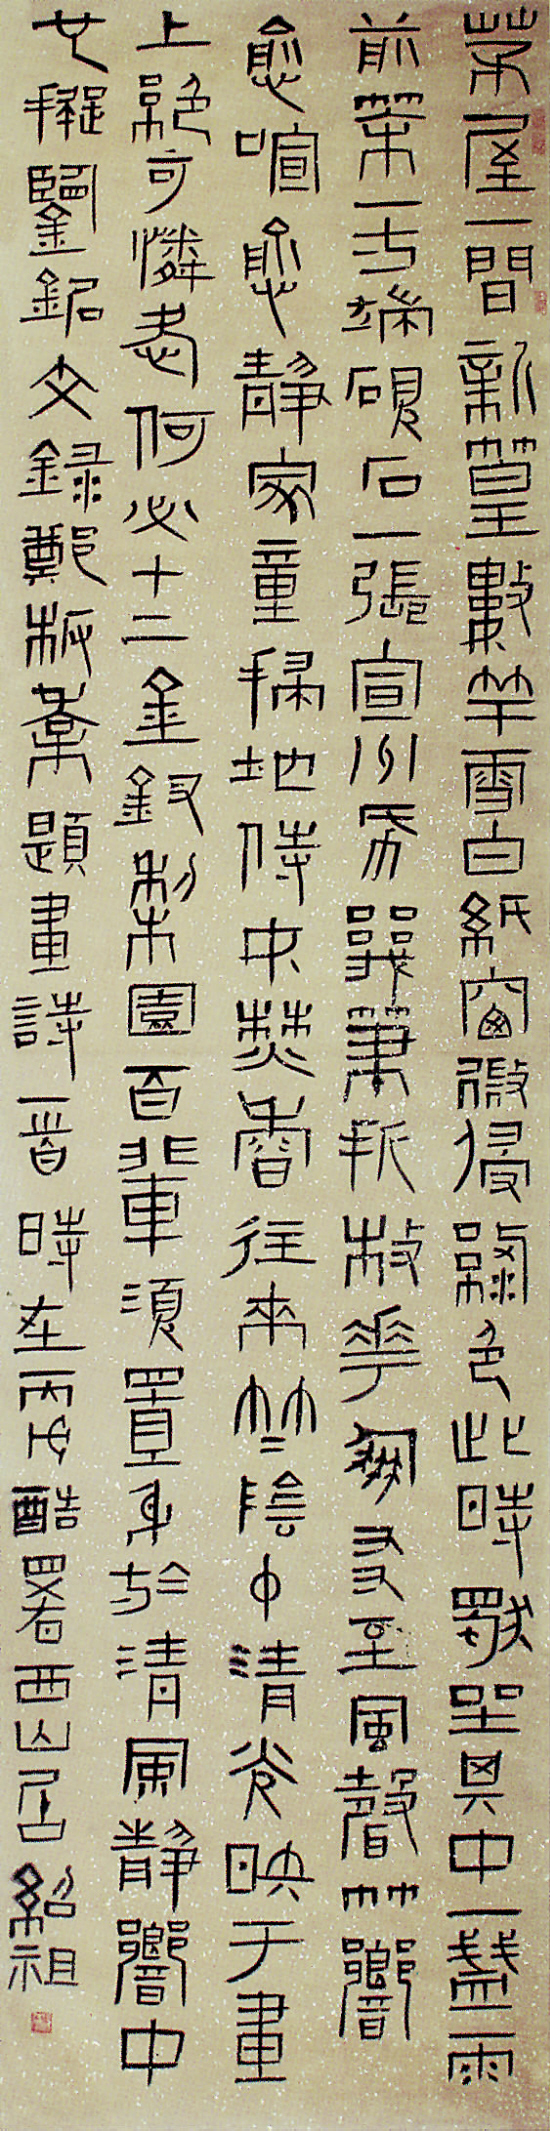 茅屋一間新篁數竿雪白紙窗微侵綠色此時獨坐其中一盞雨
前茶一方端硯石一張宣州帋幾筆折枝花朋友至風聲竹響
愈喧愈靜家童掃地侍焚香往來竹陰中清光映于畫
上絕可憐愛何必十二金釵梨園百輩須置身於清風靜響中
也擬鑒銘文錄鄭板橋題畫詩一首時在丙戌酷暑西山居紹祖